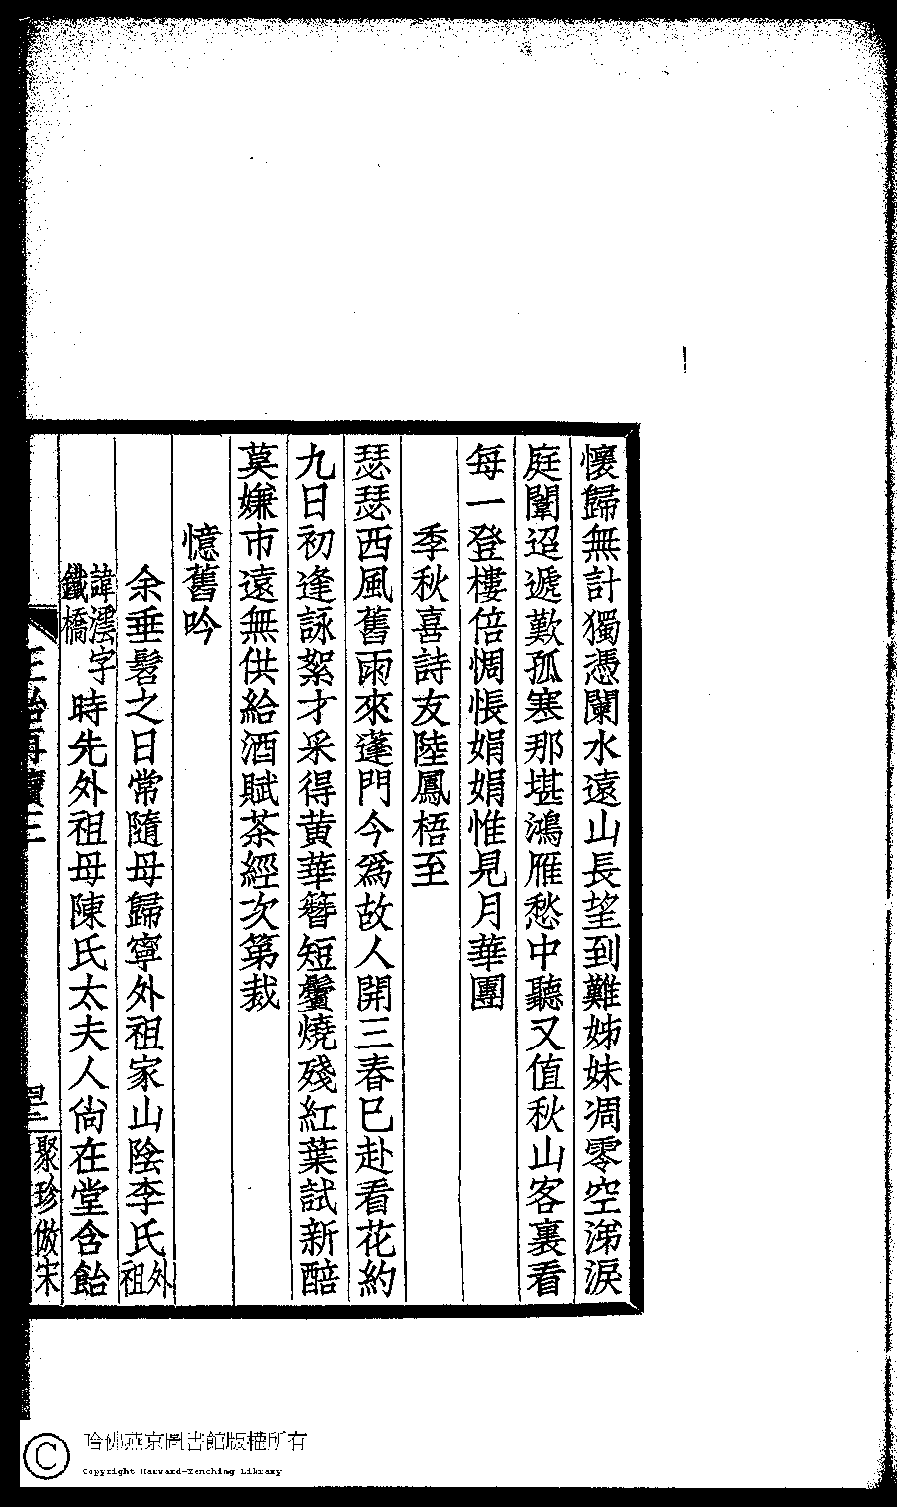 懷歸無計獨憑闌水遠山長望到難姊妹凋零空涕淚
庭闈迢遞歎孤寒那堪鴻雁愁中聽又值秋山客裏看
每一登樓倍惆悵娟娟惟見月華團
季秋喜詩友陸鳳梧至
瑟瑟西風舊雨來蓬門今爲故人開三春已赴看花約
九日初逢詠絮才采得黄華簪短鬢燒殘紅葉試新醅
莫嫌市遠無供給酒賦茶經次第裁
憶舊吟
余垂髫之日常隨母歸寧外祖家山陰李氏外祖
諱澐字鐵橋時先外祖母陳氏太夫人尙在堂含飴
聚珍倣宋
哈佛燕京圖書館版權所有
Copyright Harvard-Yenching Library